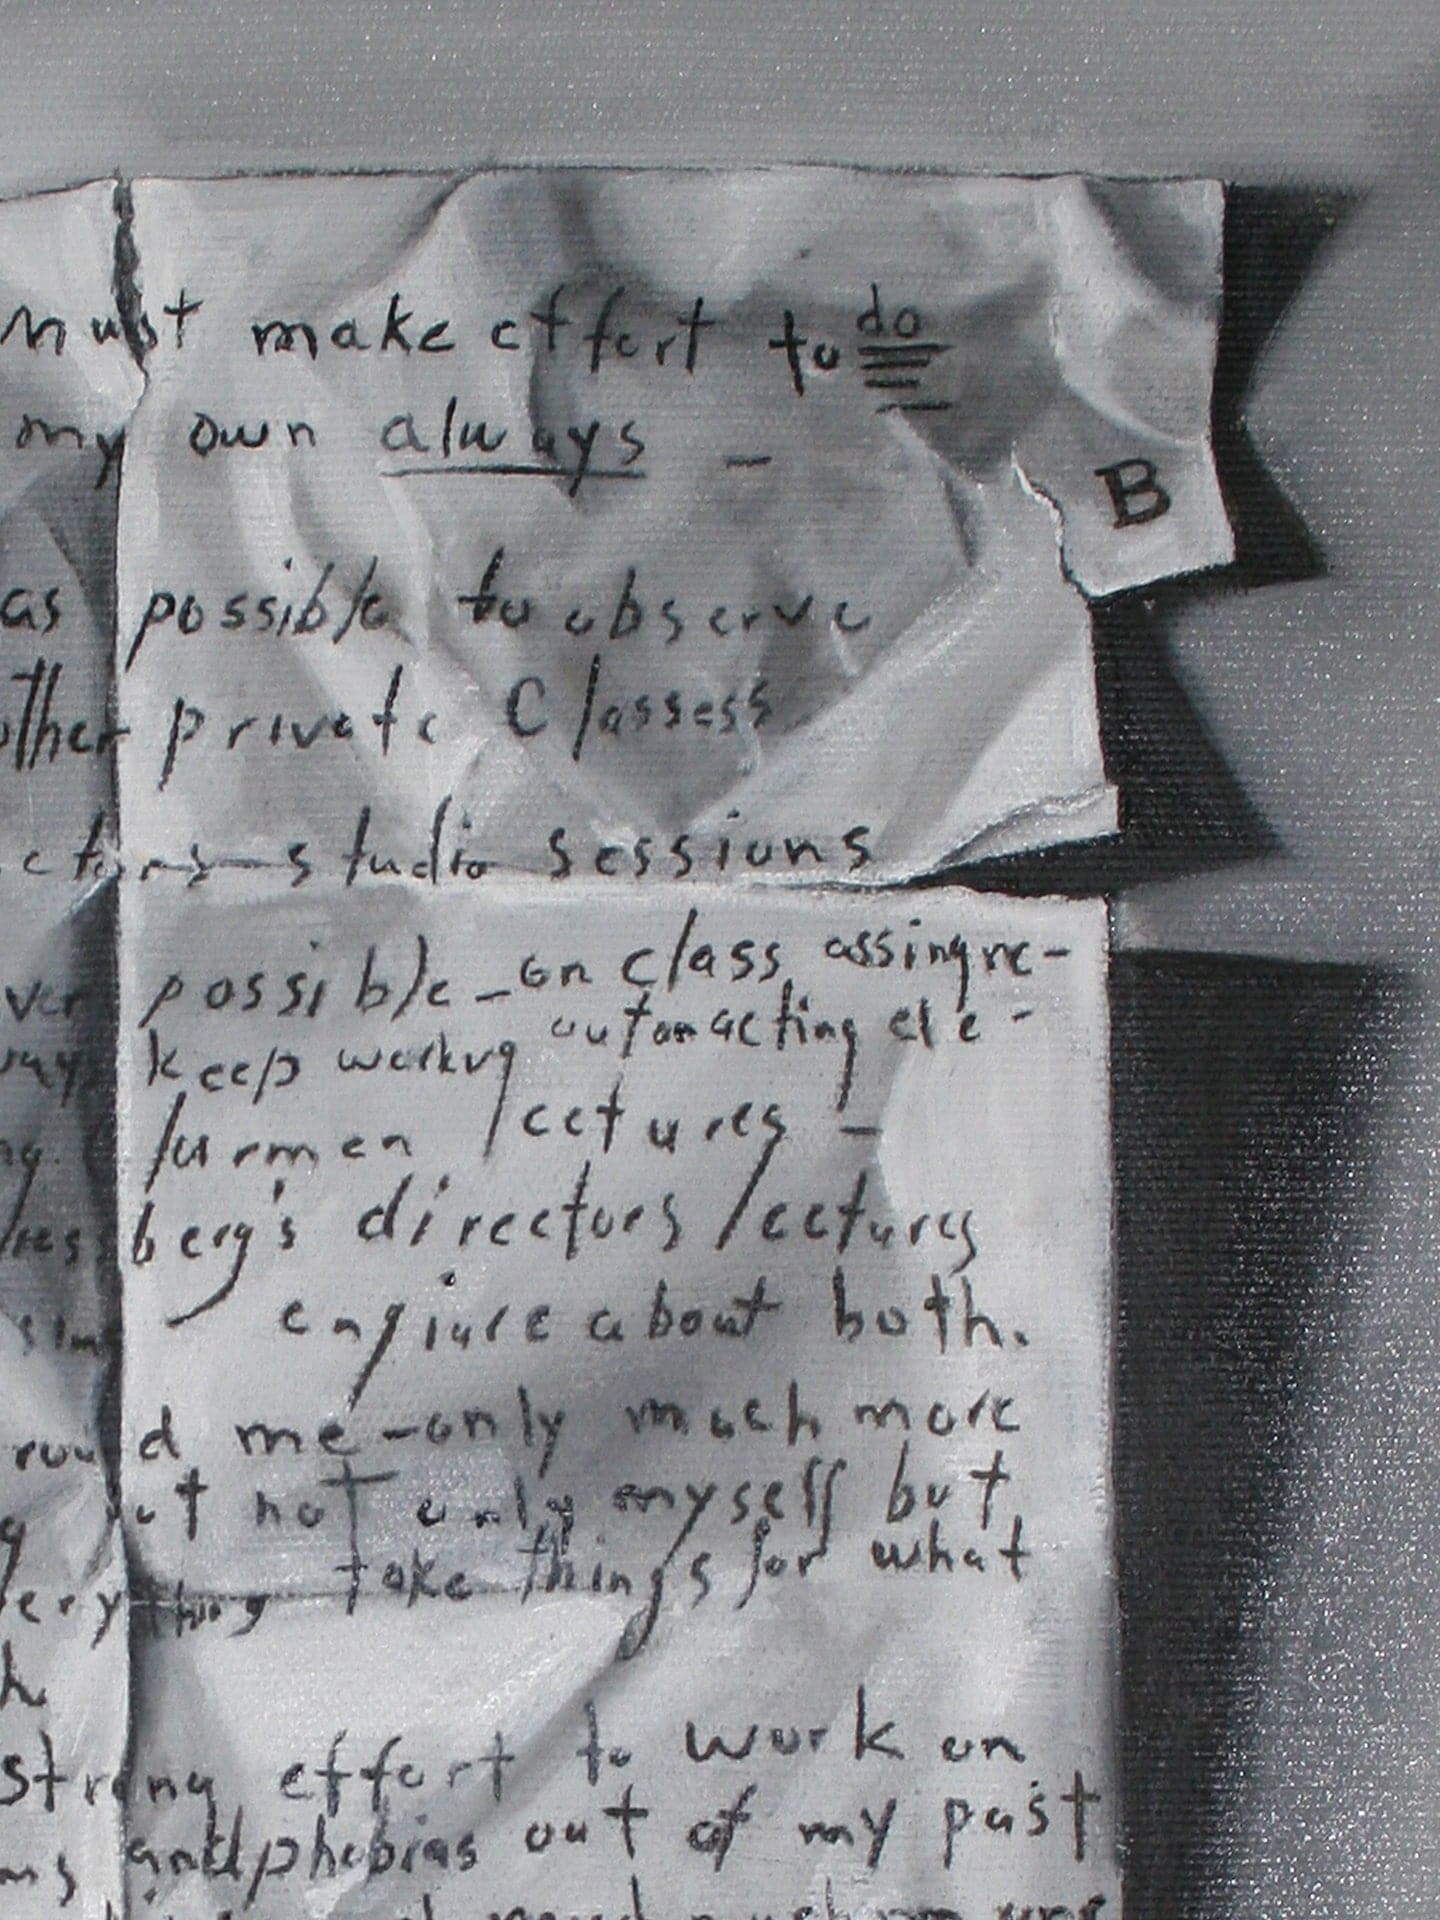 must make effort to do
my own always -
B
as possible to observe
other private Classess
ctors studio sessions
ver possible - on class assingne-
keep workvg out on acting ele-
ng. lurmen lectures -
berg's directors lectures
- enqiure about both.
round me - only much more
not only myself but
erything take things for what
strong effort to work on
ms and phobias out of my past